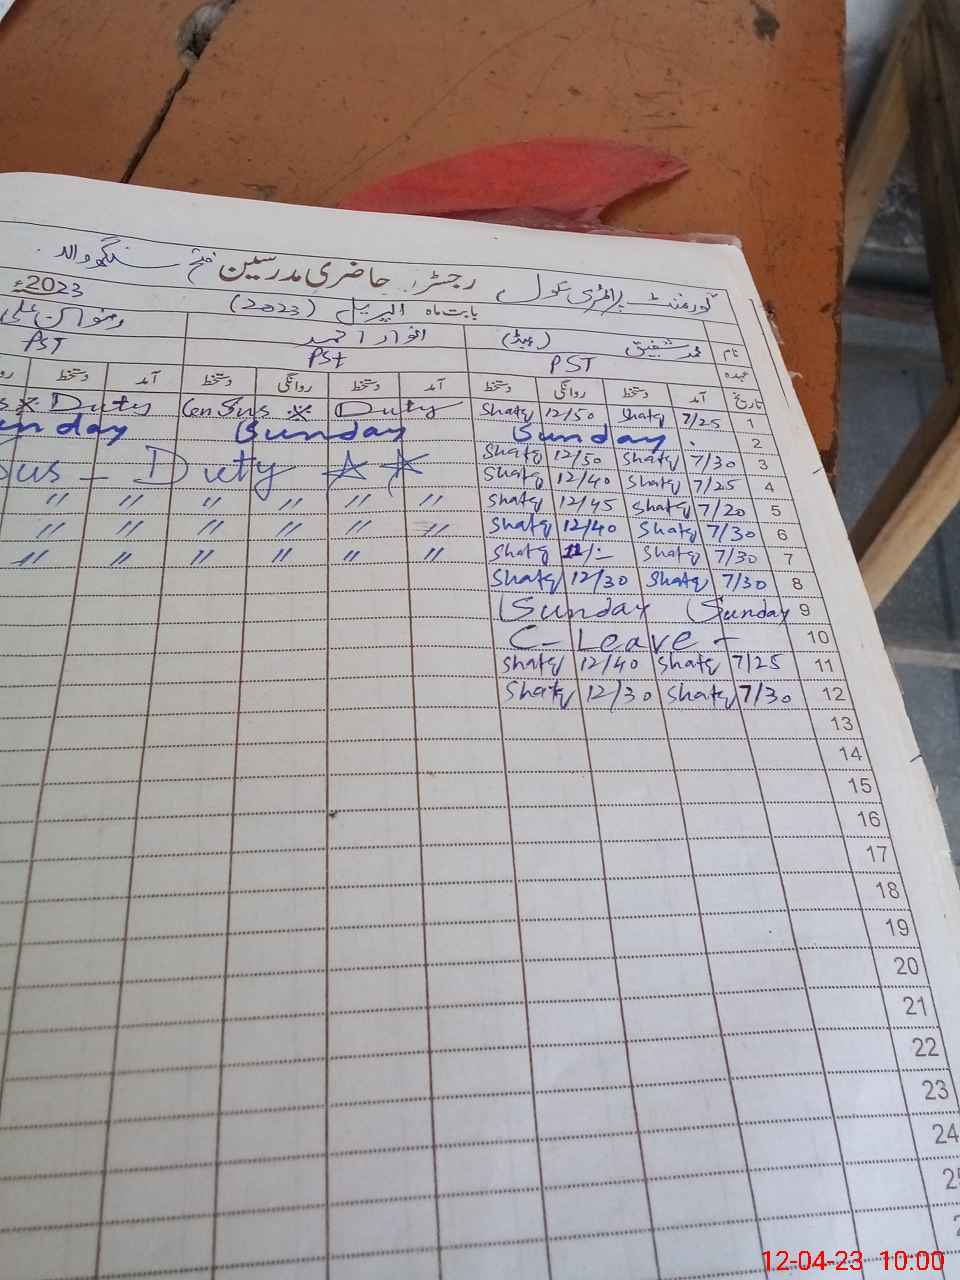 گورنمنٹ پرائمری سکول رجسٹر حاضری مدرسین فتح سنگھ والہ
بابت ماہ اپریل (2023) 2023ء
نام محمد شفیق (ہیڈ) انوار احمد رضوان علی
عہدہ PST PSt PST
تاریخ آمد دستخط روانگی دستخط آمد دستخط روانگی دستخط آمد دستخط
1 7/25 Shafq 12/50 Shafq Census ※ Duty ※ Duty
2 Sunday Sunday
3 7/30 Shafq 12/50 Shafq Duty ☆ ☆
4 7/25 Shafq 12/40 Shafq
5 7/20 Shafq 12/45 Shafq 〃 〃 〃 〃 〃 〃 〃
6 7/30 Shafq 12/40 Shafq 〃 〃 〃 〃 〃 〃 〃
7 7/30 Shafq Shafq 〃 〃 〃 〃 〃 〃 〃
8 7/30 Shafq 12/30 Shafq
9 Sunday Sunday
10 C-Leave -
11 7/25 Shafq 12/40 Shafq
12 7/30 Shafq 12/30 Shafq
13
14
15
16
17
18
19
20
21
22
23
24
12-04-23 10:00